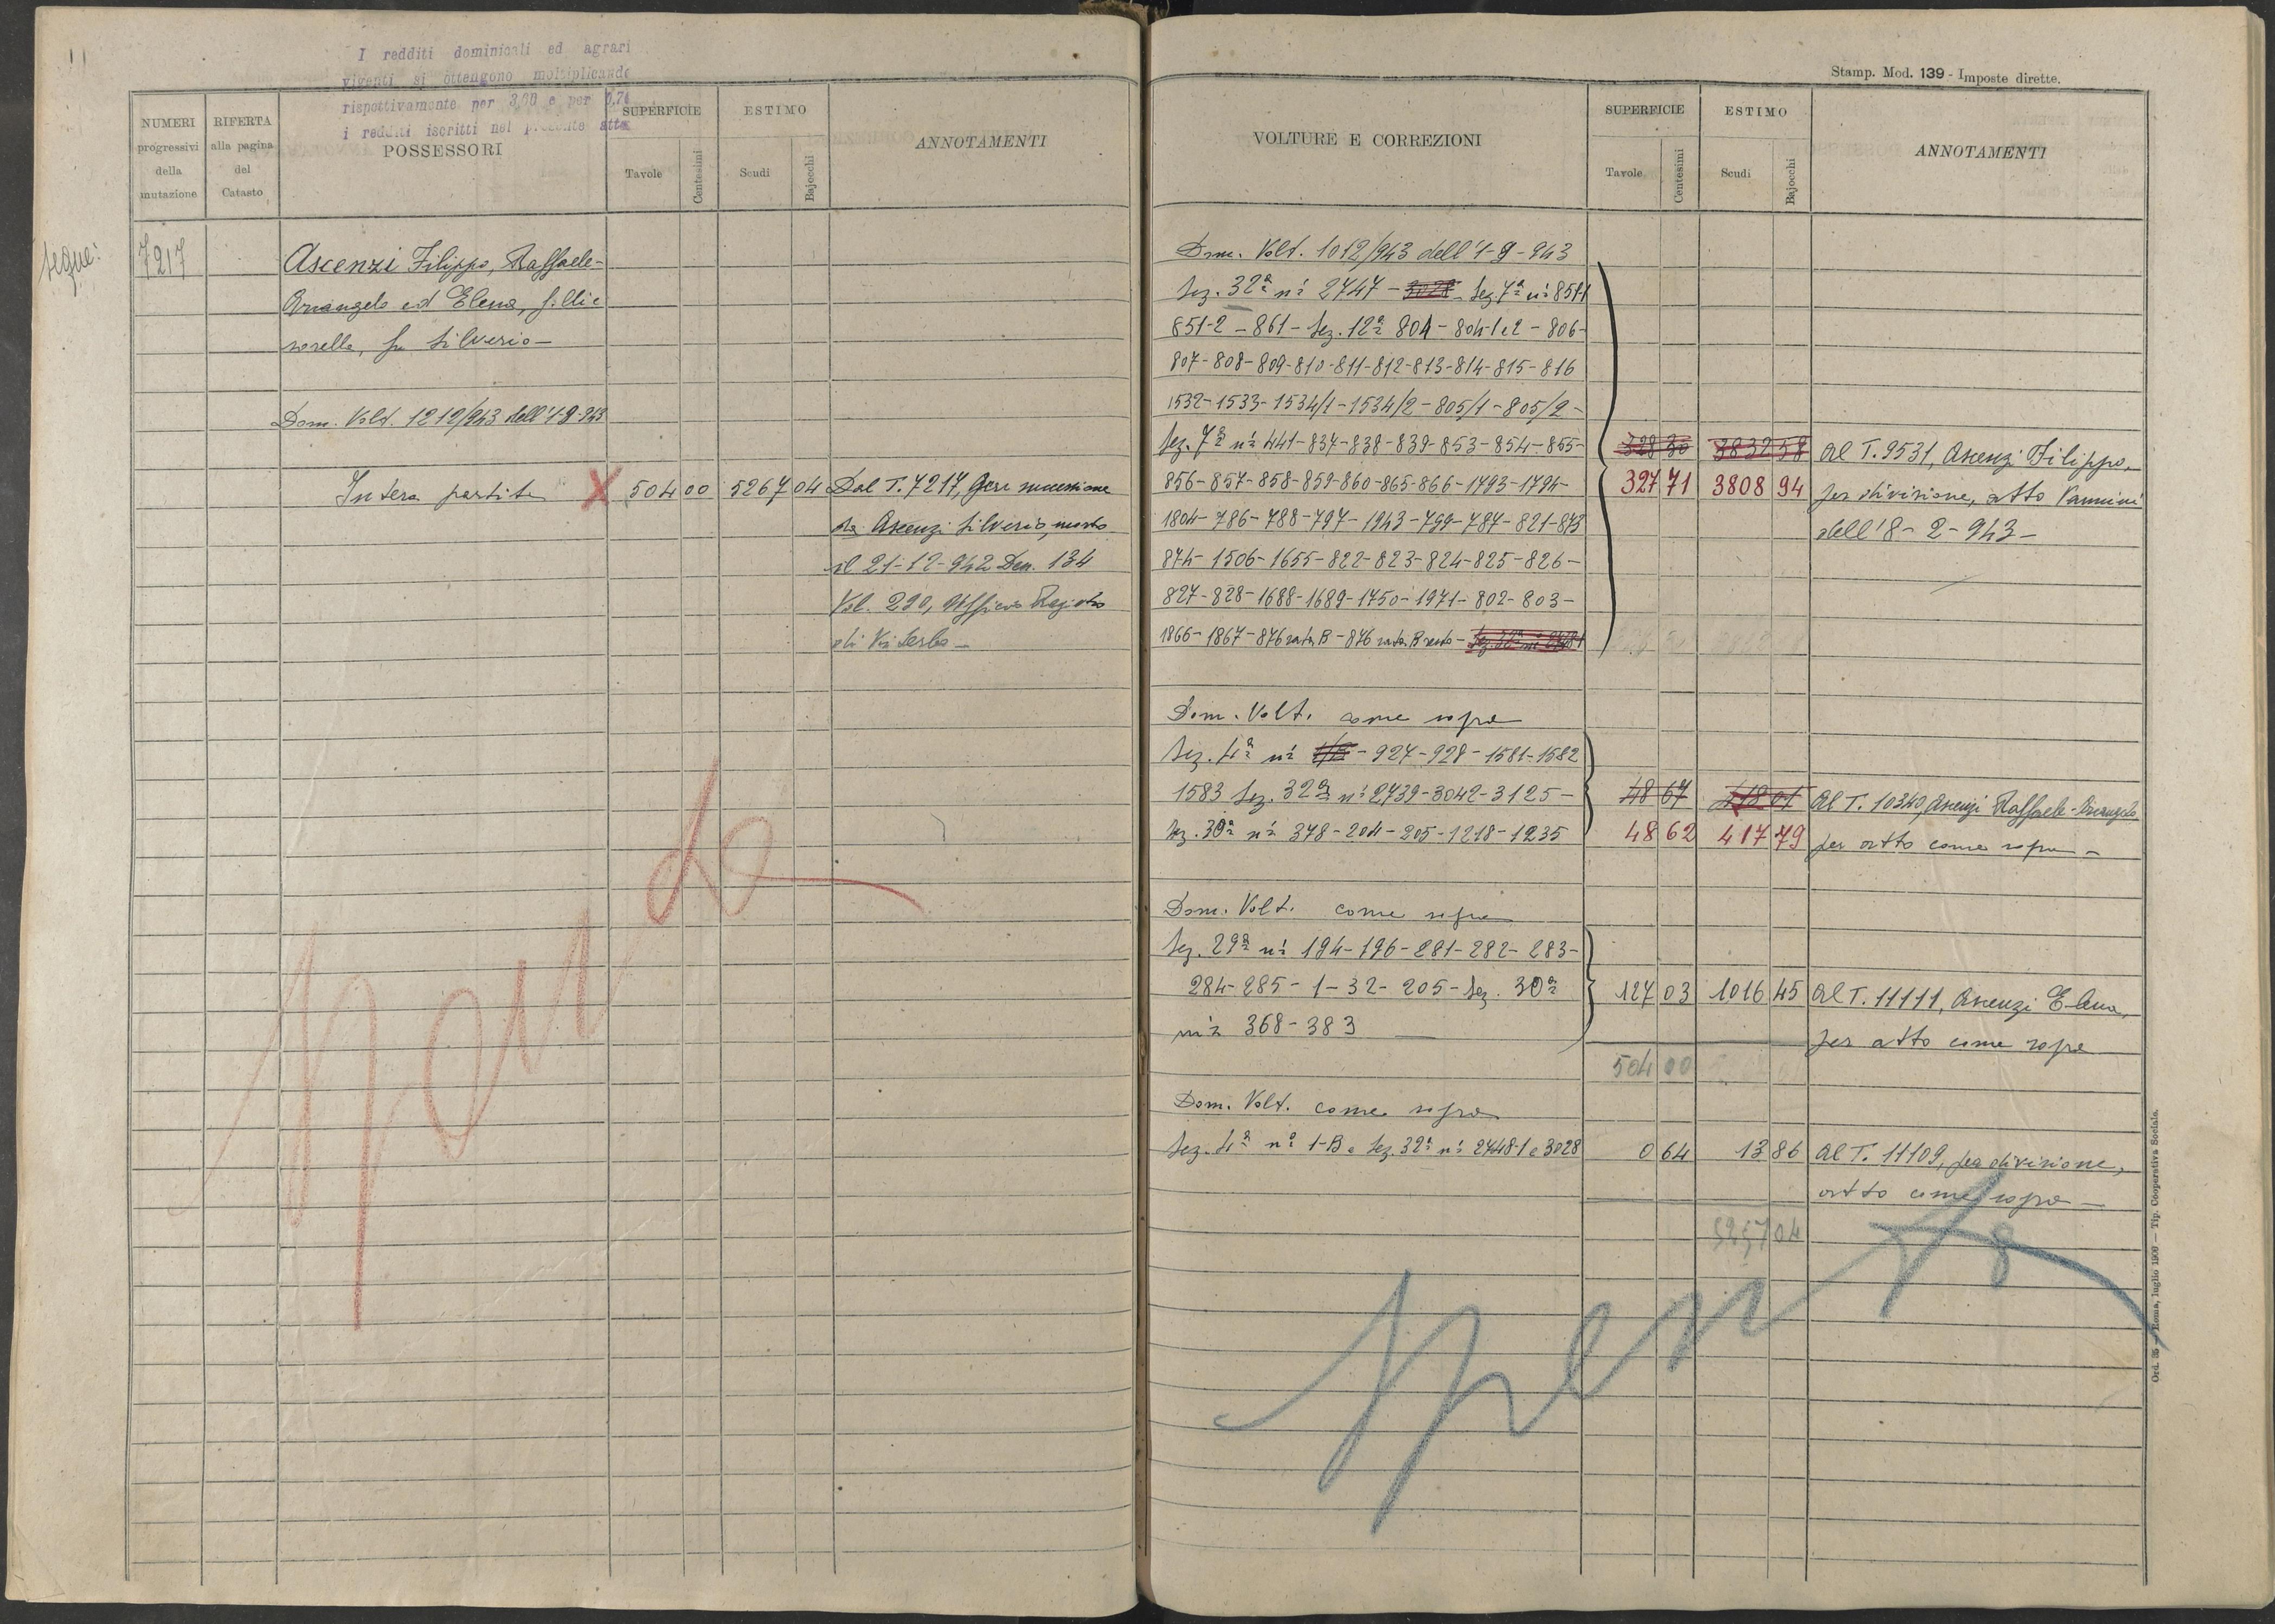 I redditi dominicali ed agrari
vigenti si ottengono moltiplicando
rispettivamente per 3,00 e per 0,70
i redditi iscritti nel presente atto
NUMERI progressivi della mutazione
RIFERTA alla pagina del Catasto
POSSESSORI
SUPERFICIE
Tavole
Centesimi
ESTIMO
Scudi
Bajocchi
ANNOTAMENTI
segue:
7217
Ascenzi Filippo, Raffaele-
Arcangelo ed Elena, f.lli e
sorella, fu Silverio-
Dom. Volt. 1212/943 dell'1-9-943
Intera partita X 504 00 5267 04 Dal T. 7217, per successione
da Ascenzi Silverio, morto
il 21-12-942 Den. 134
Vol. 290, Ufficio Registro
di Viterbo-
Spenta
Stamp. Mod. 139 - Imposte dirette.
VOLTURE E CORREZIONI
SUPERFICIE
Tavole
Centesimi
ESTIMO
Scudi
Bajocchi
ANNOTAMENTI
Dom. Volt. 1012/943 dell'1-9-943
Sez. 32ª ni 2747 - 3028 - Sez. 7ª ni 851-1
851-2 - 861 - Sez. 12ª 804 - 804-1 e 2 - 806-
807-808-809-810-811-812-813-814-815-816
1532-1533-1534/1-1534/2-805/1-805/2-
Sez. 7ª ni 441-837-838-839-853-854-855- 328 30 3832 58 Al T. 9531, Ascenzi Filippo,
856-857-858-859-860-865-866-1793-1794- 327 71 3808 94 per divisione, atto Vannini
1804-786-788-797-1943-799-787-821-873 dell'8-2-943-
874-1506-1655-822-823-824-825-826-
827-828-1688-1689-1750-1971-802-803-
1866-1867-876 rata B-876 rata B resto-
Dom. Volt. come sopra
Sez. 4ª ni - 927-928-1581-1582
1583 Sez. 32ª ni 2739-3042-3125- 48 67 418 01 Al T. 10340, Ascenzi Raffaele-Arcangelo
Sez. 30ª ni 378-204-205-1218-1235 48 62 417 79 per atto come sopra-
Dom. Volt. come sopra
Sez. 29ª ni 194-196-281-282-283-
284-285-1-32-205-Sez. 30ª 127 03 1016 45 Al T. 11111, Ascenzi Elena,
ni 368-383 per atto come sopra
504 00
Dom. Volt. come sopra
Sez. 4ª nº 1-B e Sez. 32ª ni 2748-1 e 3028 0 64 13 86 Al T. 11109, per divisione,
atto come sopra-
5257 04
Spenta
Ord. 35 - Roma, luglio 1900 - Tip. Cooperativa Sociale.